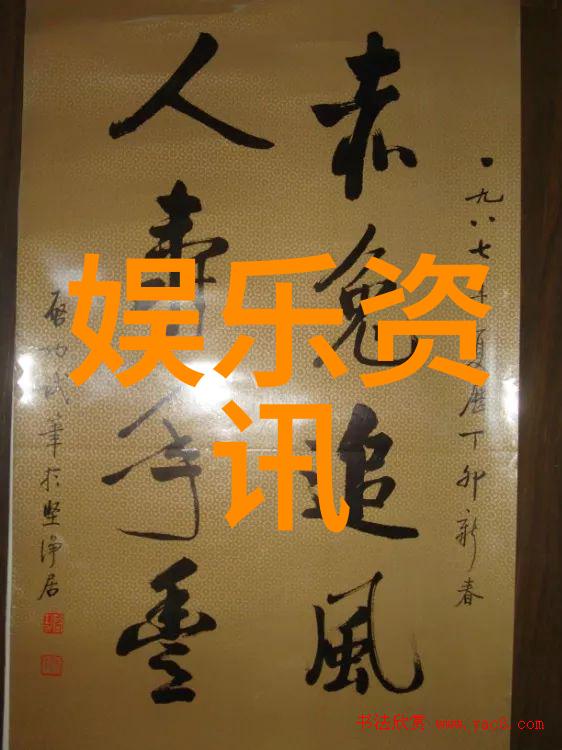 一九八七年夏历丁卯新春
赤兔追風
人壽年豐
启功试筆於堅净居
娱乐资
讯
书法欣赏 www.yac8.com